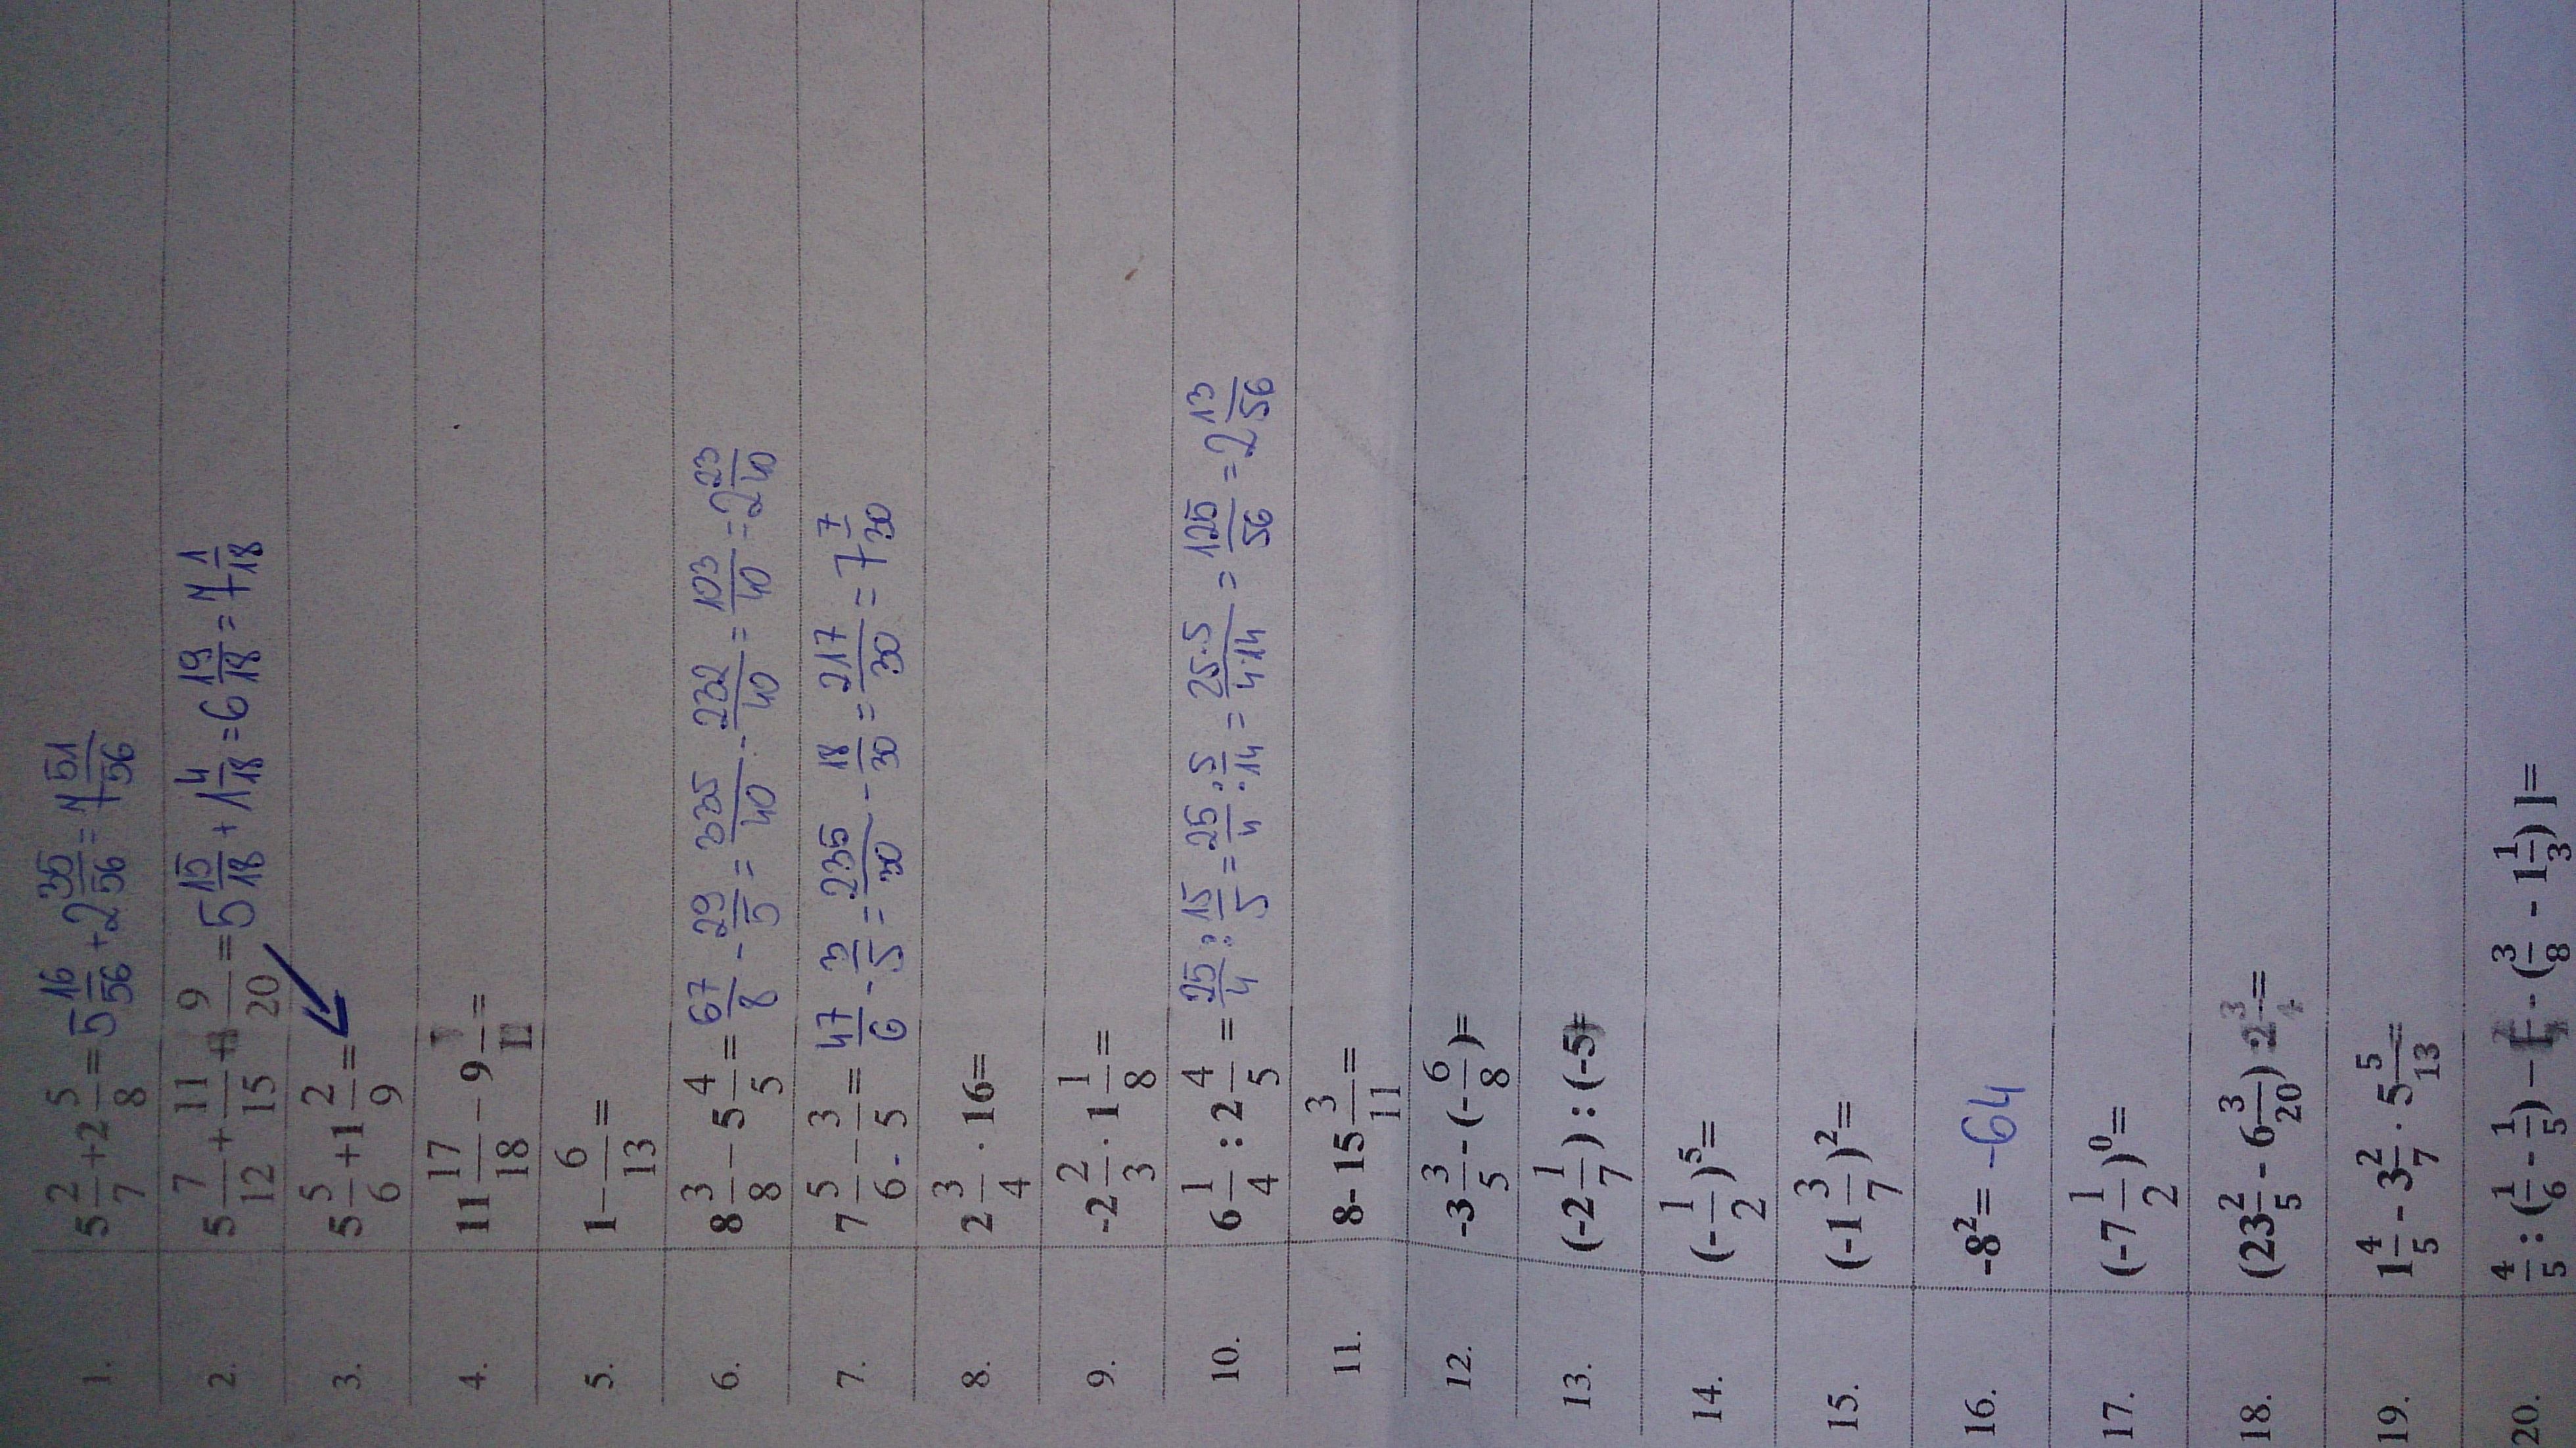 1. 5 2/7 + 2 5/8 = 5 16/56 + 2 35/56 = 7 51/56
2. 5 7/12 + 11/15 + 9/20 = 5 15/18 + 1 4/18 = 6 19/18 = 7 1/18
3. 5 5/6 + 1 2/9 =
4. 11 17/18 − 9 =
5. 1 − 6/13 =
6. 8 3/8 − 5 4/5 = 67/8 - 29/5 = 335/40 - 232/40 = 103/40 = 2 23/40
7. 7 5/6 − 3/5 = 47/6 - 3/5 = 235/30 - 18/30 = 217/30 = 7 7/30
8. 2 3/4 · 16=
9. -2 2/3 · 1 1/8 =
10. 6 1/4 : 2 4/5 = 25/4 : 15/5 = 25/4 : 5/14 = 25·5/4·14 = 125/56 = 2 13/56
11. 8- 15 3/11 =
12. -3 3/5 - (- 6/8 )=
13. (-2 1/7 ) : (-5)=
14. (- 1/2 )⁵=
15. (-1 3/7 )²=
16. -8²= -64
17. (-7 1/2 )⁰=
18. (23 2/5 - 6 3/20 ) : 2 3/4 =
19. 1 4/5 - 3 2/7 · 5 5/13 =
20. 4/5 : ( 1/6 - 1/5 ) − [ - ( 3/8 - 1 1/3 ) ]=